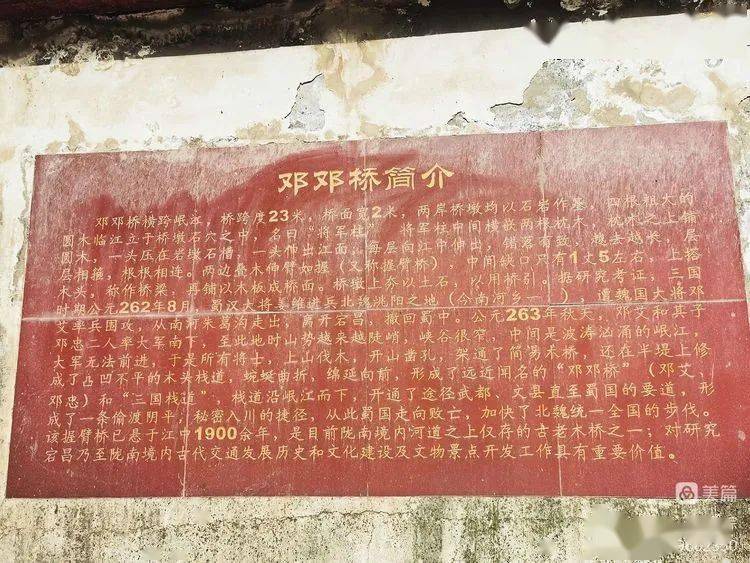 邓邓桥简介
邓邓桥横跨岷江，桥跨度23米，桥面宽2米，两岸桥墩均以石岩作基，四根粗大的
圆木临江立于桥墩石穴之中，名曰“将军柱”，将军柱中间横嵌两根枕木，枕木之上铺
圆木，一头压在岩墩石槽，一头伸出江面；每层向江中伸出，错落有致，越去越长，层
层相箍，根根相连。两边叠木伸臂如握（又称握臂桥），中间缺口只有1丈5左右，上搭
木头，称作桥梁，再铺以木板成桥面。桥墩上夯以土石，以用桥引。据研究考证，三国
时期公元262年8月，蜀汉大将姜维进兵北魏洮阳之地（今南河乡一），遭魏国大将邓
艾率兵围攻，从南河朱葛沟走出，离开宕昌，撤回蜀中。公元263年秋天，邓艾和其子
邓忠二人率大军南下，至此地时山势越来越陡峭，峡谷很窄，中间是波涛汹涌的岷江，
大军无法前进，于是所有将士，上山伐木，开山凿孔，架通了简易木桥，还在半堤上修
成了凸凹不平的木头栈道，蜿蜒曲折，绵延向前，形成了远近闻名的“邓邓桥”（邓艾、
邓忠）和“三国栈道”，栈道沿岷江而下，开通了途径武都、文县直至蜀国的要道，形
成了一条偷渡阴平，秘密入川的捷径，从此蜀国走向败亡，加快了北魏统一全国的步伐。
该握臂桥已悬于江中1900余年，是目前陇南境内河道之上仅存的古老木桥之一；对研究
宕昌乃至陇南境内古代交通发展历史和文化建设及文物景点开发工作具有重要价值。
美篇